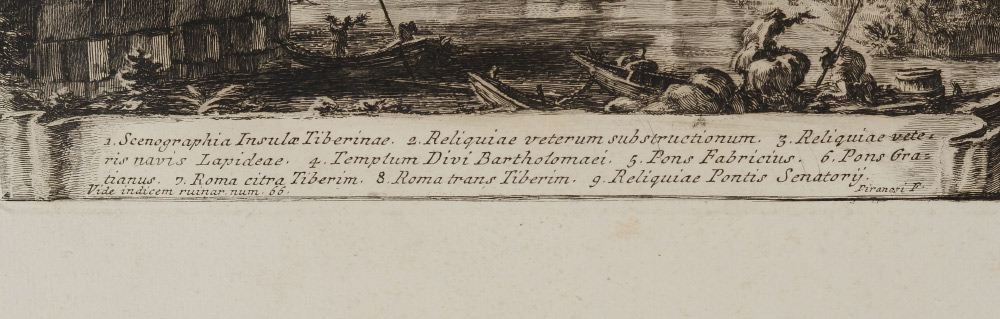 1. Scenographia Insulæ Tiberinae. 2. Reliquiae veterum substructionum. 3. Reliquiae vete=
ris navis Lapideae. 4. Templum Divi Bartholomaei. 5. Pons Fabricius. 6. Pons Gra=
tianus. 7. Roma citra Tiberim. 8. Roma trans Tiberim. 9. Reliquiae Pontis Senatorij.
Vide indicem ruinar. num. 66. Piranesi F.